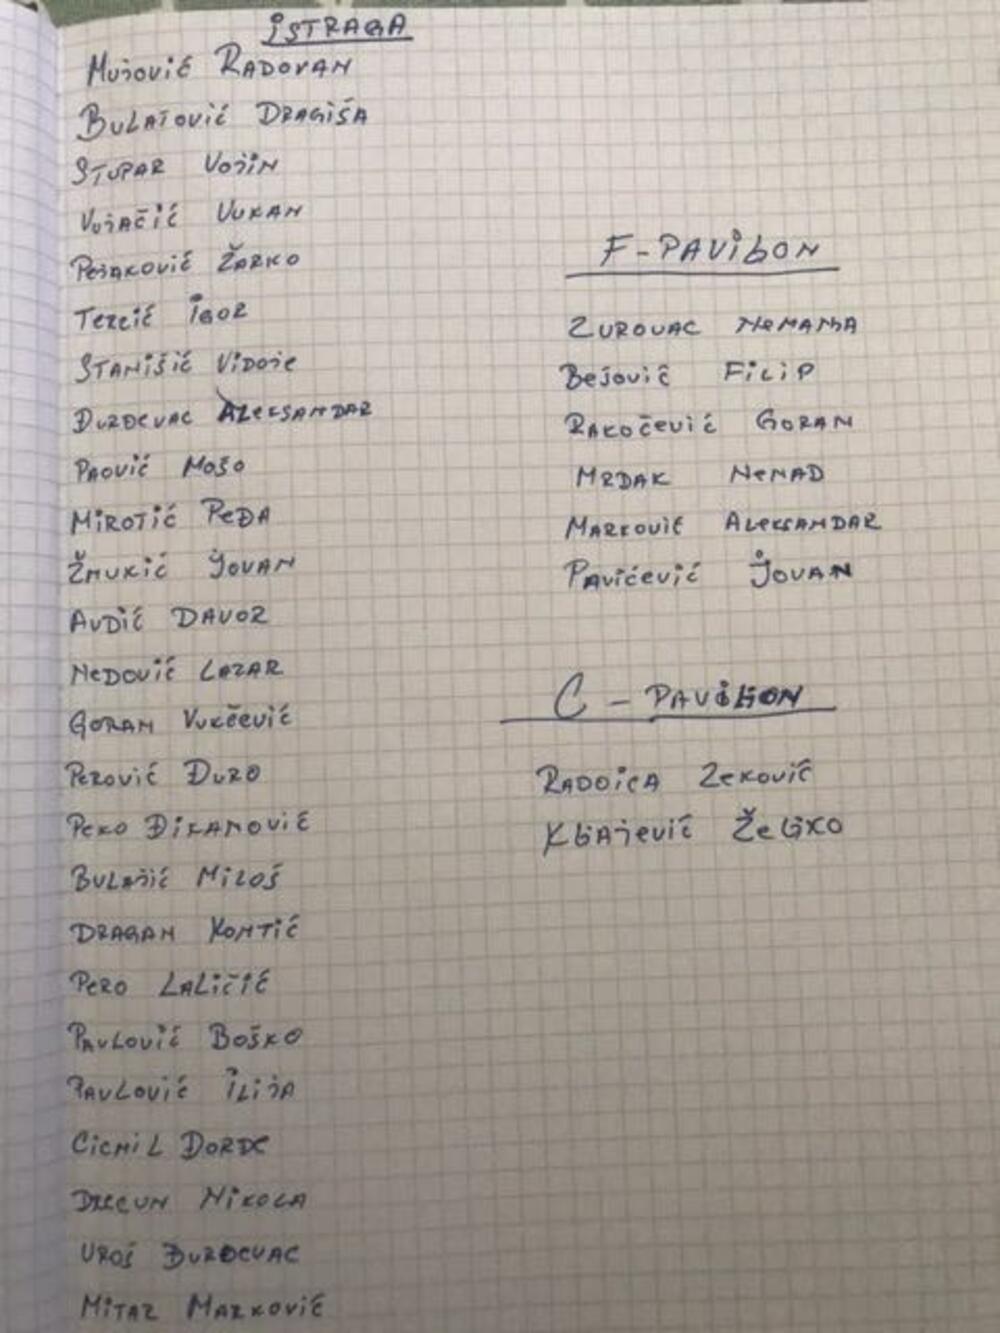 ISTRAGA
Mujović RADOVAN
BULATOVIĆ DRAGIŠA
STUPAR VOJIN
VUJAČIĆ VUKAN
PEJAKOVIĆ ŽARKO
TERZIĆ IGOR
STANIŠIĆ VIDOJE
ĐURĐEVAC ALEKSANDAR
PAOVIĆ MOŠO
MIROTIĆ PEĐA
ŽMUKIĆ JOVAN
AVDIĆ DAVOR
NEDOVIĆ LAZAR
GORAN VUKČEVIĆ
PEROVIĆ ĐURO
PEKO ĐIKANOVIĆ
BULAJIĆ MILOŠ
DRAGAN KONTIĆ
PERO LALIČIĆ
PAVLOVIĆ BOŠKO
PAVLOVIĆ ILIJA
CICMIL ĐORĐE
DRECUN NIKOLA
UROŠ ĐURĐEVAC
MITAR MARKOVIĆ
F-PAVILJON
ZUROVAC NEMANJA
BEJOVIĆ FILIP
RAKOČEVIĆ GORAN
MRDAK NENAD
MARKOVIĆ ALEKSANDAR
PAVIĆEVIĆ JOVAN
C - PAVILJON
RADOICA ZEKOVIĆ
KLJAJEVIĆ ŽELJKO